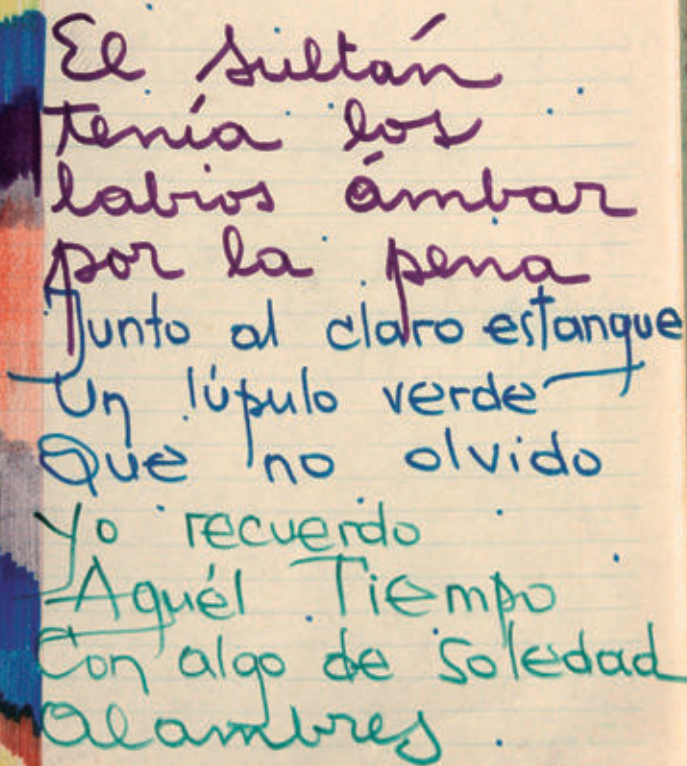 El Sultán
tenía los
labios ámbar
por la pena
Junto al claro estanque
Un lúpulo verde
Que no olvido
Yo recuerdo
Aquél Tiempo
Con algo de soledad
Alambres.